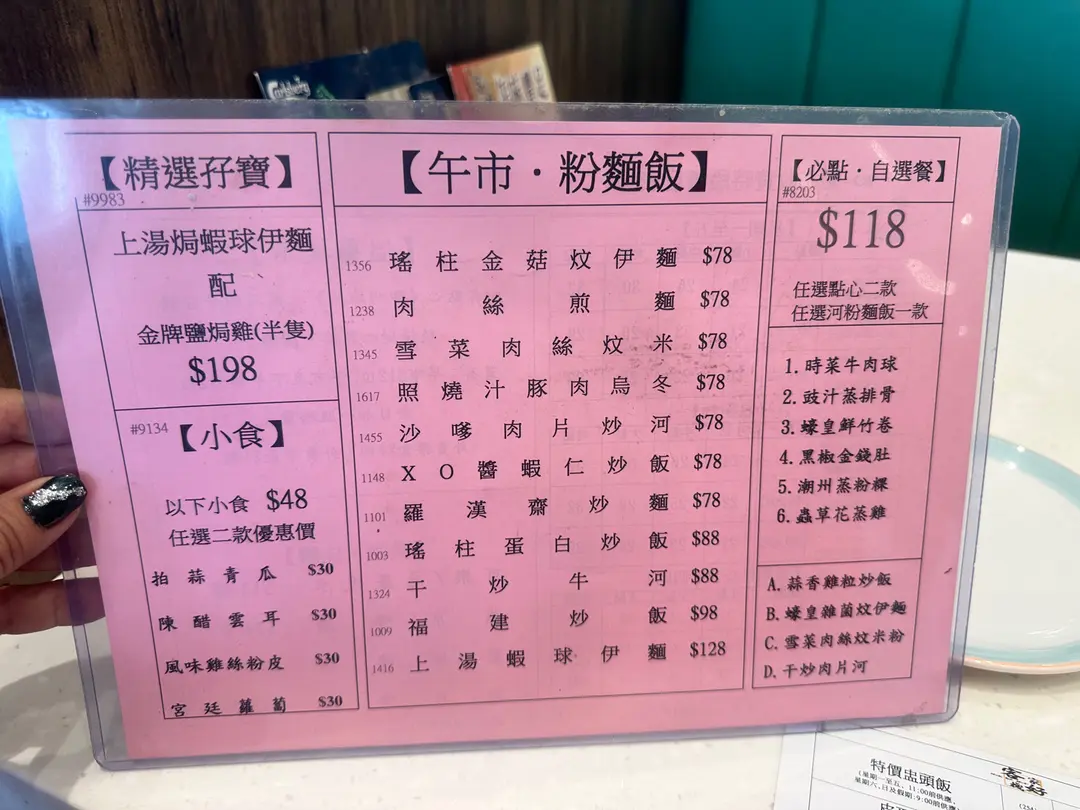 Carlsberg
【精選孖寶】
#9983
上湯焗蝦球伊麵
配
金牌鹽焗雞(半隻)
$198
#9134【小食】
以下小食 $48
任選二款優惠價
拍蒜青瓜 $30
陳醋雲耳 $30
風味雞絲粉皮 $30
宮廷蘿蔔 $30
【午市·粉麵飯】
1356 瑤柱金菇炆伊麵 $78
1238 肉絲煎麵 $78
1345 雪菜肉絲炆米 $78
1617 照燒汁豚肉烏冬 $78
1455 沙嗲肉片炒河 $78
1148 XO醬蝦仁炒飯 $78
1101 羅漢齋炒麵 $78
1003 瑤柱蛋白炒飯 $88
1324 干炒牛河 $88
1009 福建炒飯 $98
1416 上湯蝦球伊麵 $128
【必點·自選餐】
#8203
$118
任選點心二款
任選河粉麵飯一款
1. 時菜牛肉球
2. 豉汁蒸排骨
3. 蠔皇鮮竹卷
4. 黑椒金錢肚
5. 潮州蒸粉粿
6. 蟲草花蒸雞
A. 蒜香雞粒炒飯
B. 蠔皇雜菌炆伊麵
C. 雪菜肉絲炆米粉
D. 干炒肉片河
特價盅頭飯
(星期一至五、11:00前供應,
星期六、日及假期:9:00前供應,